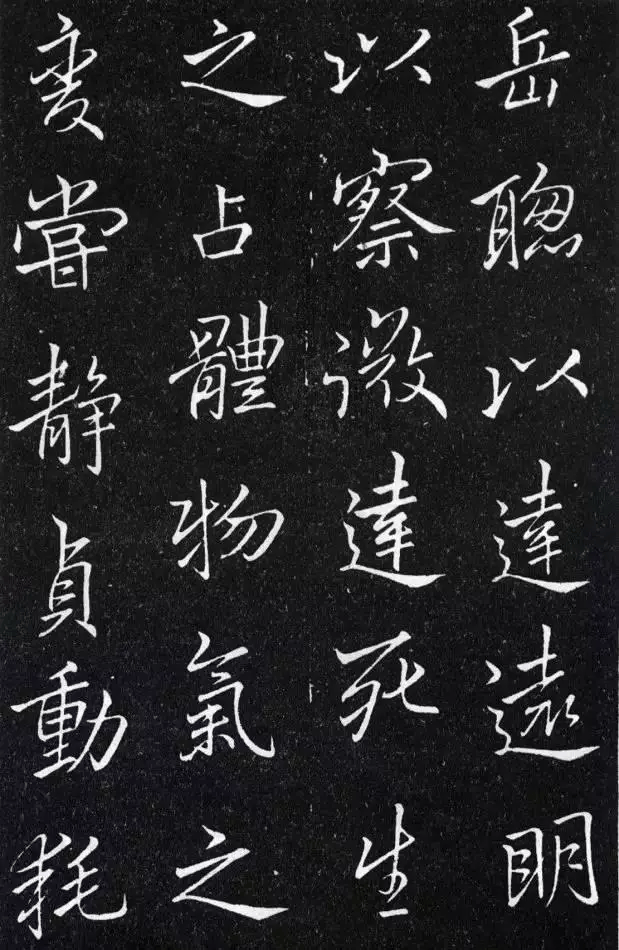 岳聰以達遠明
以察微達死生
之占體物氣之
変嘗静貞動耗